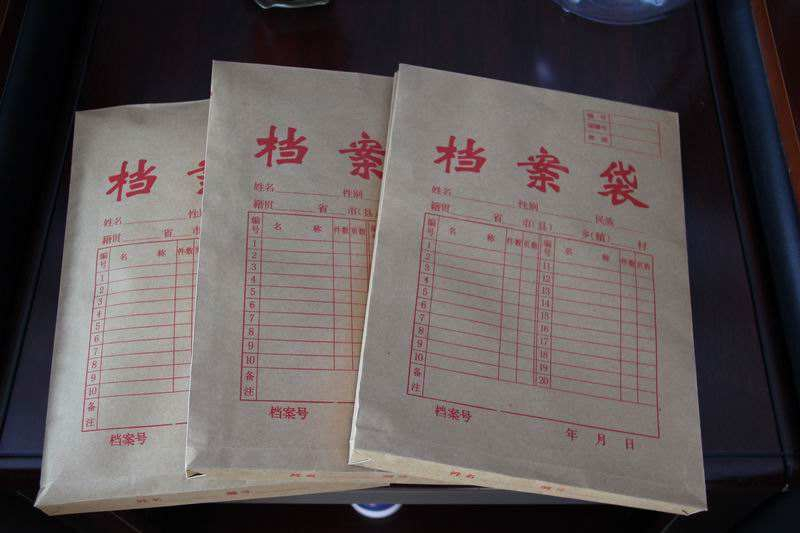 档案
姓名 性
籍贯 省 市
编号 名 称 件数 页
1
2
3
4
5
6
7
8
9
10
备注
档案号
档案
姓名 性别
籍贯 省 市(县
编号 名 称 件数 页数
1
2
3
4
5
6
7
8
9
10
备注
档案号
姓名
档案袋
姓名 性别 民族
籍贯 省 市(县) 乡(镇) 村
编号 名 称 件数 页数 编号 名 称 件数 页数
1 11
2 12
3 13
4 14
5 15
6 16
7 17
8 18
9 19
10 20
备注
档案号
年 月 日
姓名